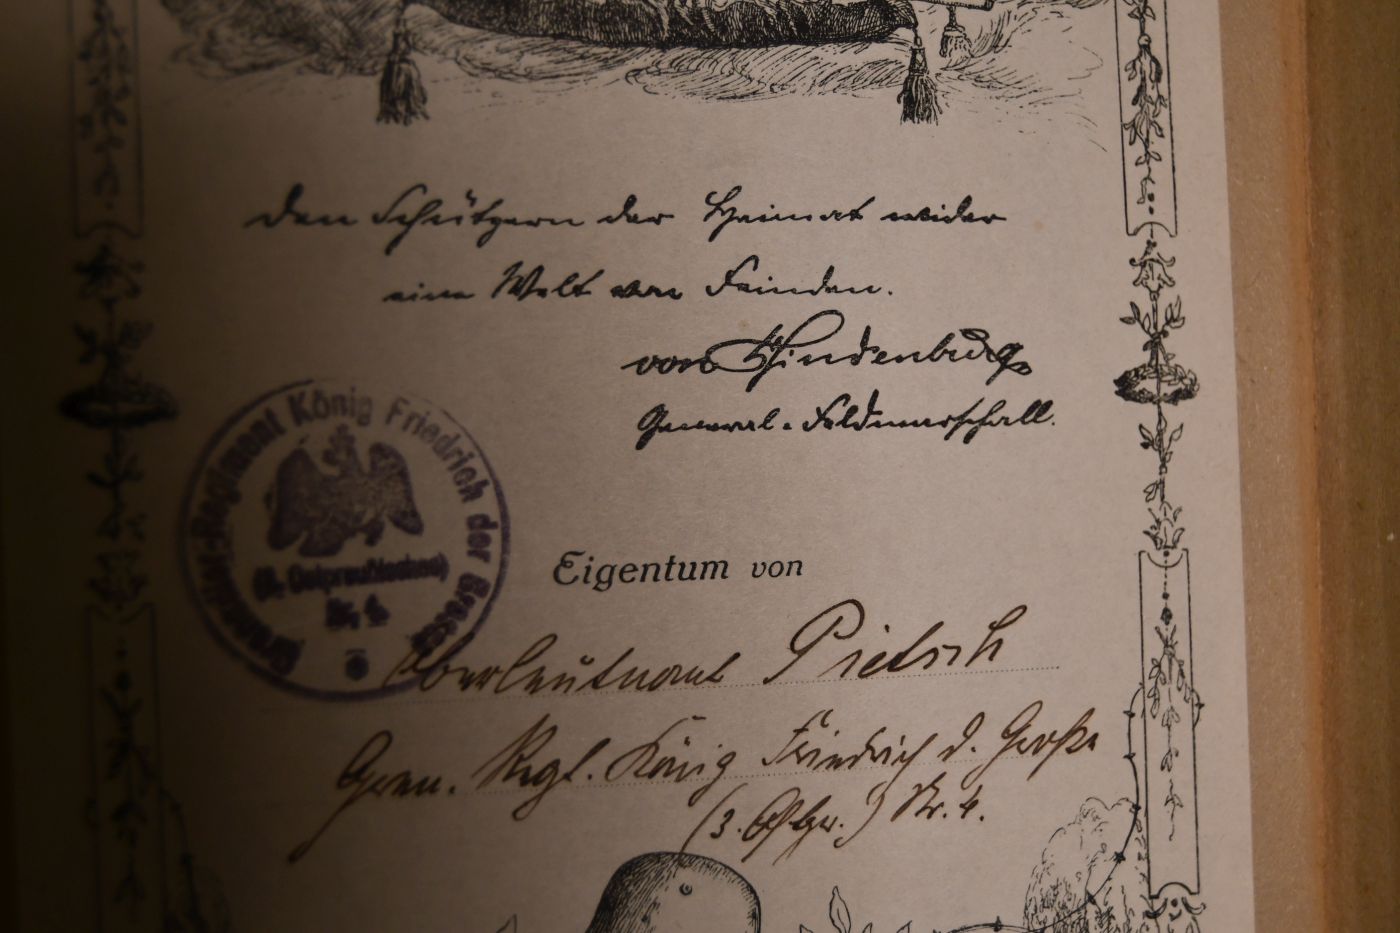 Den Schützern der Heimat wider
eine Welt von Feinden.
von Hindenburg
General-Feldmarschall.
Grenadier-Regiment König Friedrich der Grosse
(3. Ostpreußisches)
Nr. 4.
Eigentum von
Oberleutnant Pietsch
Gren. Regt. König Friedrich d. Große
(3. Ostpr.) Nr. 4.